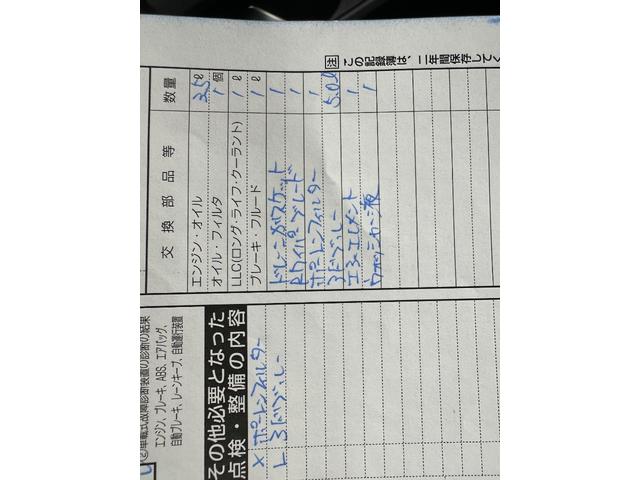 注 この記録簿は、二年間保存してく
交換部品等 数量
エンジン・オイル 3.5ℓ
オイル・フィルタ 1個
LLC(ロング・ライフ・クーラント) 1ℓ
ブレーキ・フルード 1ℓ
ドレーンガスケット 1
Rワイパーブレード 1
ポートンフィルター 1
5.0ℓ
エアーエレメント 1
ウォッシャー液 1
エンジン、ブレーキ、ABS、エアバッグ、
自動ブレーキ、レーンキープ、自動運行装置
その他必要となった
点検・整備の内容
× ポートンフィルター